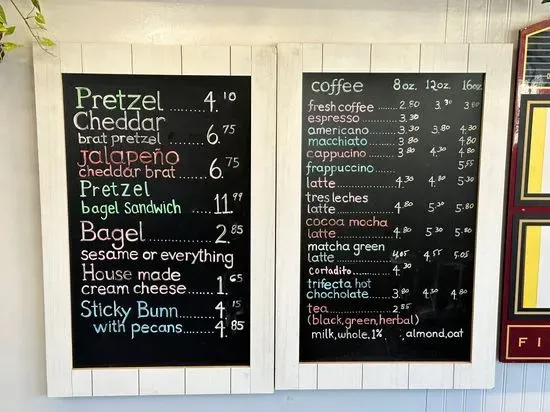 Pretzel ........ 4.10
Cheddar
brat pretzel ...... 6.75
Jalapeño
cheddar brat ...... 6.75
Pretzel
bagel sandwich ...... 11.99
Bagel ........ 2.85
sesame or everything
House made
cream cheese ...... 1.65
Sticky Bunn ...... 4.15
with pecans ...... 4.85
coffee 8oz. 12oz. 16oz.
fresh coffee ........ 2.80
espresso ........ 3.30
americano ........ 3.30 3.80 4.30
macchiato ........ 3.80 4.80
cappucino ........ 3.80 4.30 4.80
frappuccino ........ 5.55
latte ........ 4.30 4.80 5.30
tres leches
latte ........ 4.80 5.30 5.80
cocoa mocha
latte ........ 4.80 5.30 5.80
matcha green
latte ........ 4.05 4.55 5.05
cortadito ........ 4.30
trifecta hot
chocholate ........ 3.80 4.30 4.80
tea ........ 2.55
(black,green,herbal)
milk,whole,1% ,almond,oat
FI